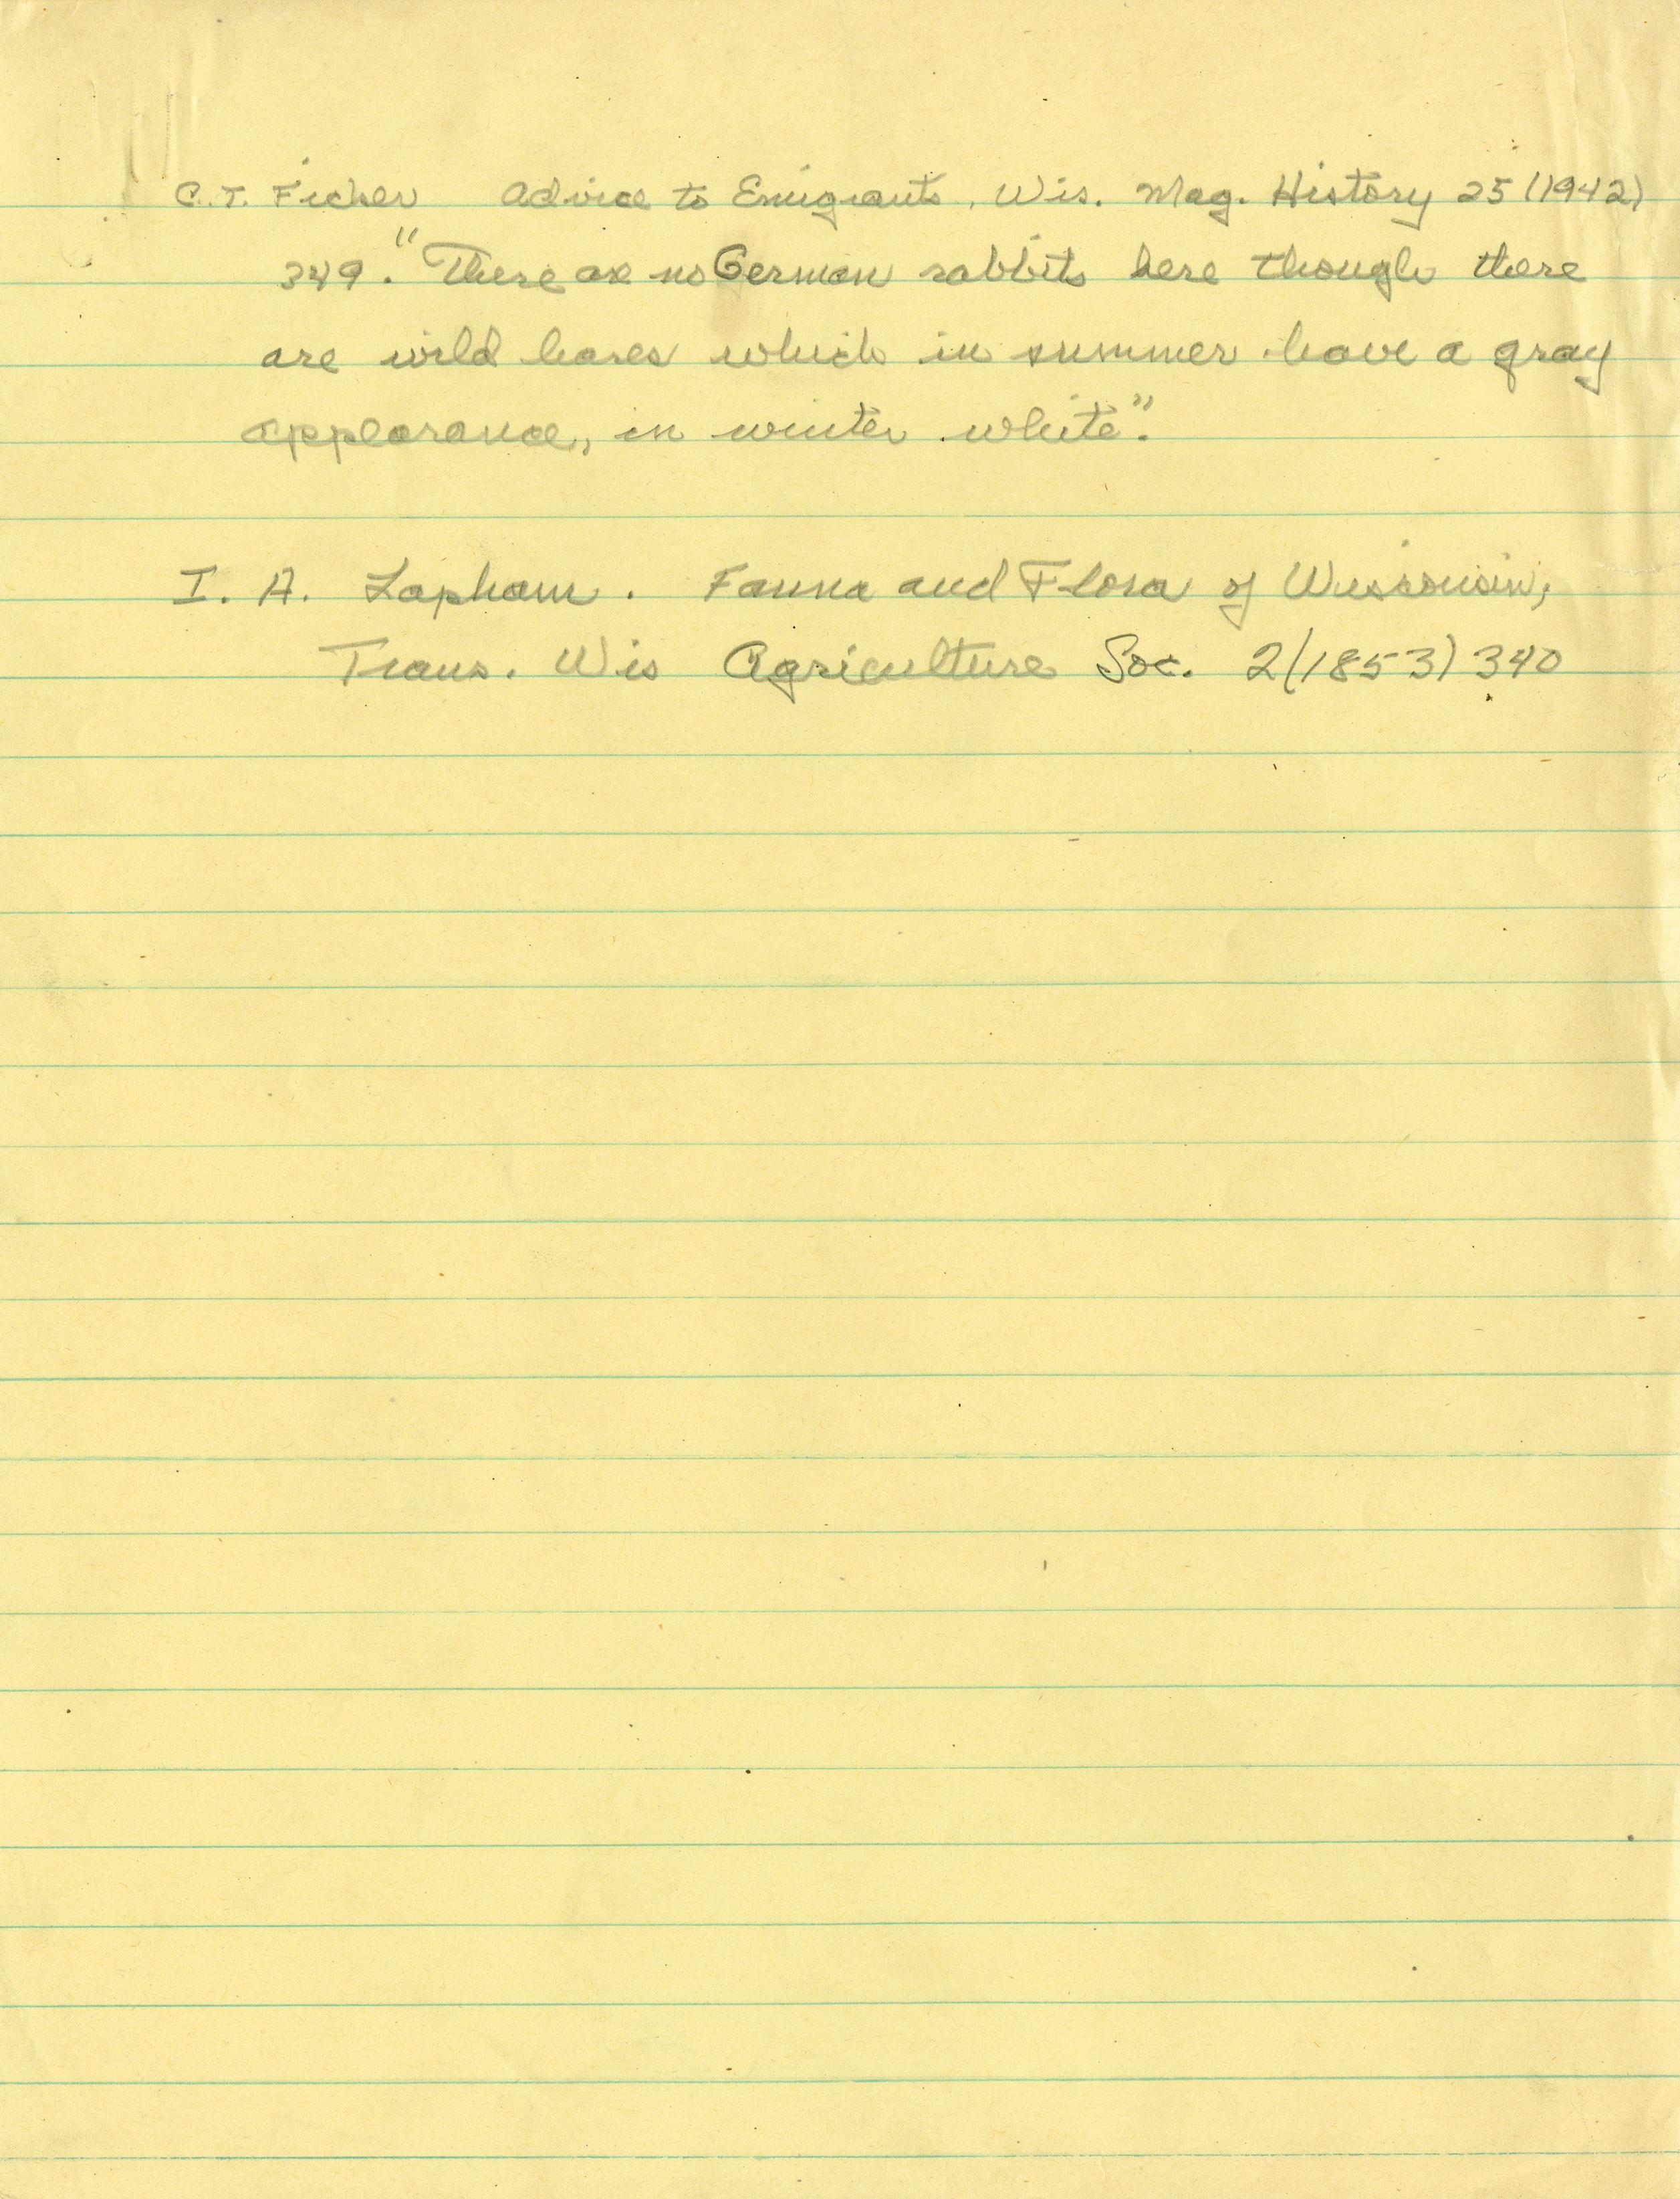 C.T. Ficker Advice to Emigrants. Wis. Mag. History 25 (1942)
349. "There are no German rabbits here though there
are wild hares which in summer have a gray
appearance, in winter white".
I. A. Lapham. Fauna and Flora of Wisconsin,
Trans. Wis Agriculture Soc. 2(1853) 340